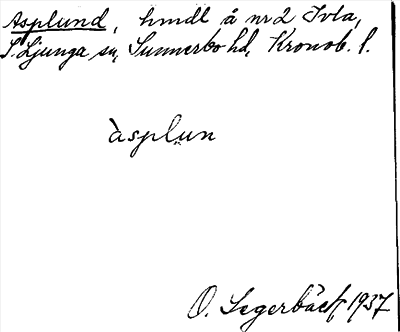 Asplund, hmdl å nr 2 Ivla,
S. Ljunga sn, Sunnerbo hd, Kronob. l.
àsplun
O. Segerbäck 1937